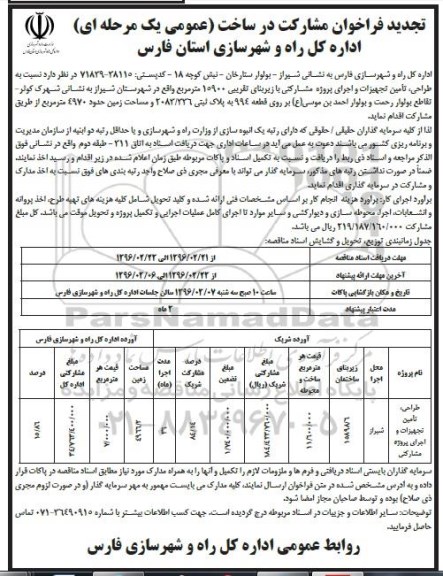 تجدید فراخوان مشارکت در ساخت (عمومی یک مرحله ای)
اداره کل راه و شهرسازی استان فارس
اداره کل راه و شهرسازی فارس به نشانی شیراز - بولوار ستارخان - نبش کوچه ۱۸ - کدپستی: ۳۸۱۱۵-۷۱۸۳۹ در نظر دارد نسبت به
طراحی، تأمین تجهیزات و اجرای پروژه مشارکتی با زیربنای تقریبی ۱۵۹۰۰ مترمربع واقع در شهرستان شیراز به نشانی شهرک کوثر-
تقاطع بولوار رحمت و بولوار احمد بن موسی(ع) بر روی قطعه ۹۹۴ به پلاک ثبتی ۲۰۸۲/۲۳۶ و مساحت زمین حدود ۴۹۷۰ مترمربع از طریق
مشارکت اقدام نماید.
لذا از کلیه سرمایه گذاران حقیقی / حقوقی که دارای رتبه یک انبوه سازی از وزارت راه و شهرسازی و یا حداقل رتبه دو ابنیه از سازمان مدیریت
و برنامه ریزی کشور می باشند دعوت به عمل می آید در ساعات اداری جهت دریافت اسناد به اتاق ۲۱۱ - طبقه دوم واقع در نشانی فوق
الذکر مراجعه و اسناد ذی ربط را دریافت و نسبت به تکمیل اسناد و پاکات مربوطه طبق زمان اعلام شده در زیر اقدام و رسید اخذ نمایند.
ضمناً در صورت نداشتن رتبه های مذکور، سرمایه گذار می تواند با معرفی مجری ذی صلاح واجد رتبه بندی های فوق نسبت به اخذ مدارک
و مشارکت در سرمایه گذاری اقدام نماید.
برآورد اجرای کار: برآورد هزینه انجام کار بر اساس مشخصات فنی ارائه شده و کلید تحویل شامل کلیه هزینه های تهیه طرح، اخذ پروانه
و انشعابات، اجرا، محوطه سازی و دیوارکشی و سایر موارد تا اجرای کامل عملیات اجرایی و تکمیل پروژه و تحویل موقت می باشد. کل مبلغ
مشارکت ۲۱۹/۱۸۷/۱۶۰/۰۰۰ ریال می باشد.
جدول زمانبندی توزیع، تحویل و گشایش اسناد مناقصه:
مهلت دریافت اسناد مناقصه از ۱۳۹۶/۰۲/۲۱ الی ۱۳۹۶/۰۲/۲۳
آخرین مهلت ارائه پیشنهاد از ۱۳۹۶/۰۲/۲۳ الی ۱۳۹۶/۰۳/۰۶
تاریخ و مکان بازگشایی پاکات ساعت ۱۰ صبح سه شنبه ۱۳۹۶/۰۳/۰۷ سالن جلسات اداره کل راه و شهرسازی فارس
مدت اعتبار پیشنهاد ۳ ماه
آورده شریک آورده اداره کل راه و شهرسازی فارس
نام پروژه محل اجرا زیربنای ساختمان قیمت هر مترمربع ساخت و محوطه مبلغ مشارکتی شریک (ریال) مبلغ تضمین درصد مشارکت شریک مدت اجرا (ماه) مساحت زمین قیمت هر مترمربع مبلغ مشارکتی اداره کل درصد
طراحی، تأمین تجهیزات و اجرای پروژه مشارکتی شیراز
سرمایه گذاران بایستی اسناد دریافتی و فرم ها و ملزومات لازم را تکمیل و آنها را به همراه مدارک مورد نیاز مطابق اسناد مناقصه در پاکات قرار
داده و به آدرس مشخص شده در متن فراخوان ارسال نمایند، کلیه مدارک می بایست ممهور به مهر سرمایه گذار (و در صورت لزوم مجری
ذی صلاح) بوده و توسط صاحبان مجاز امضا شود.
توضیحات: سایر اطلاعات و جزییات در اسناد مربوطه درج گردیده است. جهت کسب اطلاعات بیشتر با شماره ۳۶۴۹۰۹۱۵-۰۷۱ تماس
حاصل فرمایید.
روابط عمومی اداره کل راه و شهرسازی فارس
ParsNamadData
۰۲۱-۸۸۳۴۹۶۷۰-۵